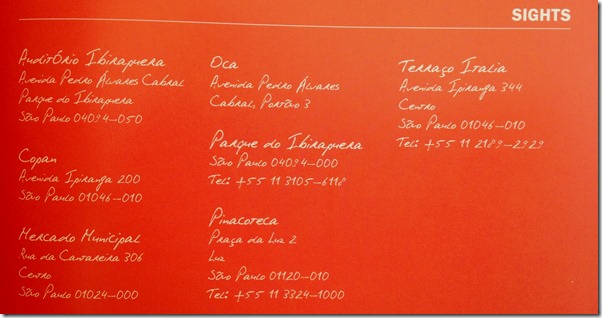 SIGHTS
Auditório Ibirapuera
Avenida Pedro Álvares Cabral
Parque do Ibirapuera
São Paulo 04094–050
Copan
Avenida Ipiranga 200
São Paulo 01046–010
Mercado Municipal
Rua da Cantareira 306
Centro
São Paulo 01024–000
Oca
Avenida Pedro Álvares
Cabral, Portão 3
Parque do Ibirapuera
São Paulo 04094–000
Tel: +55 11 3105–6118
Pinacoteca
Praça da Luz 2
Luz
São Paulo 01120–010
Tel: +55 11 3324–1000
Terraço Italia
Avenida Ipiranga 344
Centro
São Paulo 01046–010
Tel: +55 11 2189–2929